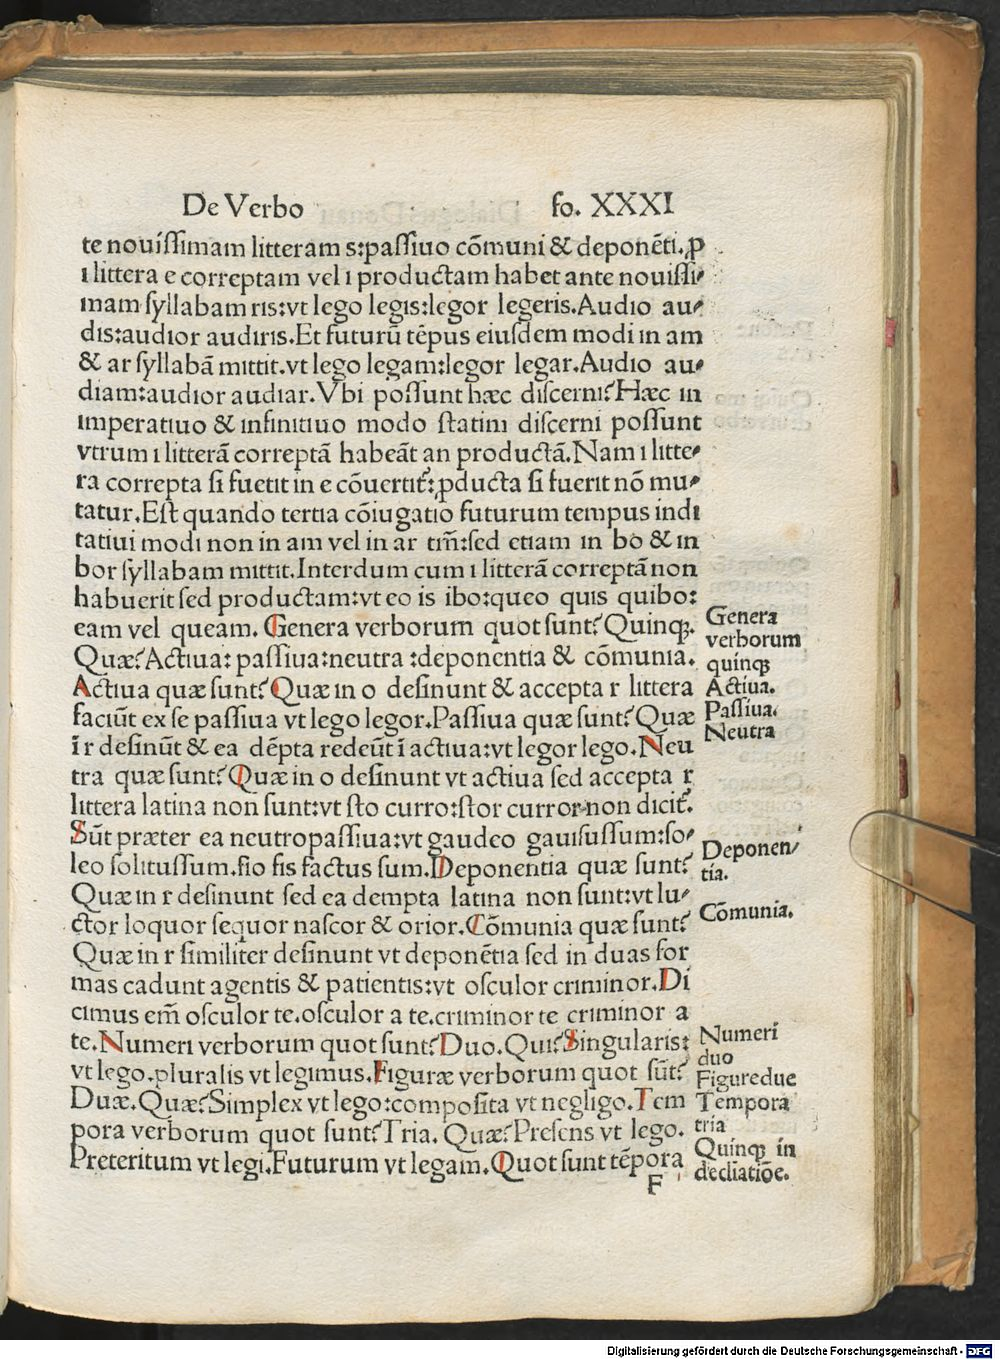 De Verbo fo. XXXI
te nouiſſimam litteram s:paſſiuo cōmuni & deponēti.ꝓ
ı littera e correptam vel ı productam habet ante nouiſſi⸗
mam ſyllabam ris:vt lego legis:legor legeris.Audio au⸗
dis:audior audiris.Et futurū tēpus eiuſdem modi in am
& ar ſyllabā mittit.vt lego legam:legor legar.Audio au⸗
diam:audior audiar.Vbi poſſunt hæc diſcerni?Hæc in
imperatiuo & infinitiuo modo ſtatim diſcerni poſſunt
vtrum ı litterā correptā habeāt an productā.Nam ı litte⸗
ra correpta ſi fuetit in e cōuertit᷑:ꝓducta ſi fuerit nō mu⸗
tatur.Eſt quando tertia cōiugatio futurum tempus indi
tatiui modi non in am vel in ar tm̄:ſed etiam in bo & in
bor ſyllabam mittit.Interdum cum ı litterā correptā non
habuerit ſed productam:vt eo is ibo:queo quis quibo:
eam vel queam. Genera verborum quot ſunt?Quinqꝫ.
Quæ?Actiua: paſſiua:neutra :deponentia & cōmunia.
Actiua quæ ſunt?Quæ in o deſinunt & accepta r littera
faciūt ex ſe paſſiua vt lego legor.Paſſiua quæ ſunt?Quæ
ī r deſinūt & ea dēpta redeūt ī actiua:vt legor lego.Neu
tra quæ ſunt?Quæ in o deſinunt vt actiua ſed accepta r
littera latina non ſunt:vt ſto curro:ſtor curror non dicit᷑.
Sūt præter ea neutropaſſiua:vt gaudeo gauiſusſum:ſo⸗
leo ſolitusſum.fio fis factus ſum.Deponentia quæ ſunt?
Quæ in r deſinunt ſed ea dempta latina non ſunt:vt lu⸗
ctor loquor ſequor naſcor & orior.Cōmunia quæ ſunt?
Quæ in r ſimiliter deſinunt vt deponētia ſed in duas for
mas cadunt agentis & patientis:vt oſculor criminor.Di
cimus em̄ oſculor te.oſculor a te.criminor te criminor a
te.Numeri verborum quot ſunt?Duo.Qui?Singularis:
vt lego.pluralis vt legimus.Figuræ verborum quot ſūt?
Duæ.Quæ?Simplex vt lego:compoſita vt negligo.Tem
pora verborum quot ſunt?Tria. Quæ?Preſens vt lego.
Preteritum vt legi.Futurum vt legam.Quot ſunt tēpora
F
Genera
verborum
quinqꝫ
Actiua.
Paſſiua.
Neutra
Deponen⸗
tia.
Cōmunia.
Numeri
duo
Figuredue
Tempora
tria
Quinqꝫ in
decliatiōe.
Digitalisierung gefördert durch die Deutsche Forschungsgemeinschaft - DFG